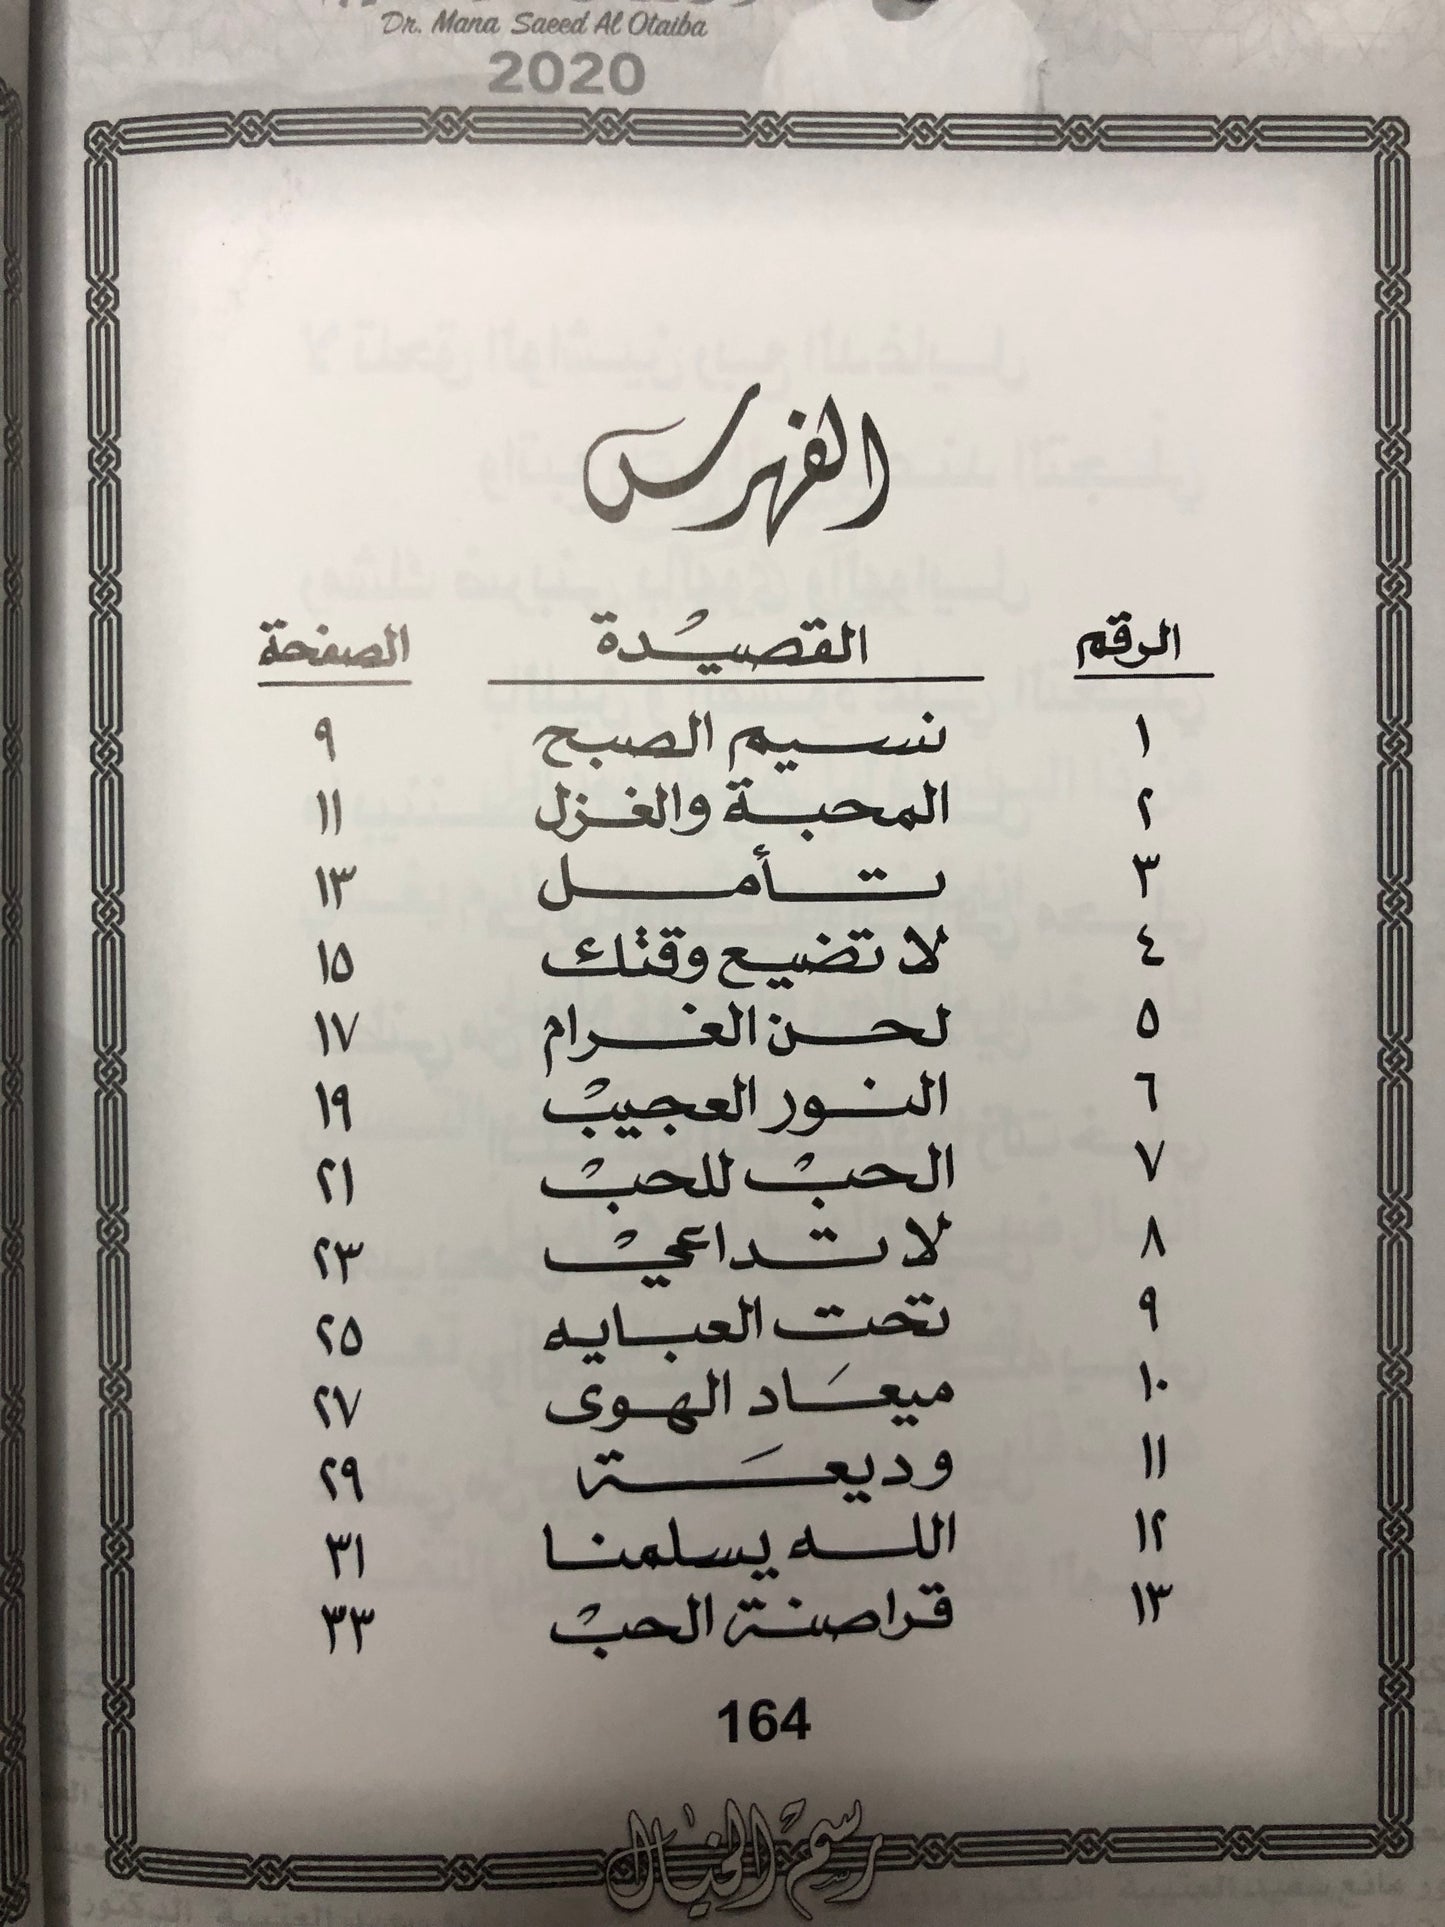 Dr. Mana Saeed Al Otaiba
2020
الفهرس
الرقم القصيدة الصفحة
١ نسيم الصبح ٩
٢ المحبة والغزل ١١
٣ تأمل ١٣
٤ لا تضيع وقتك ١٥
٥ لحن الغرام ١٧
٦ النور العجيب ١٩
٧ الحب للحب ٢١
٨ لا تداعي ٢٣
٩ تحت العبايه ٢٥
١٠ ميعاد الهوى ٢٧
١١ وديعة ٢٩
١٢ الله يسلمنا ٣١
١٣ قراصنة الحب ٣٣
164
رسم الخيال